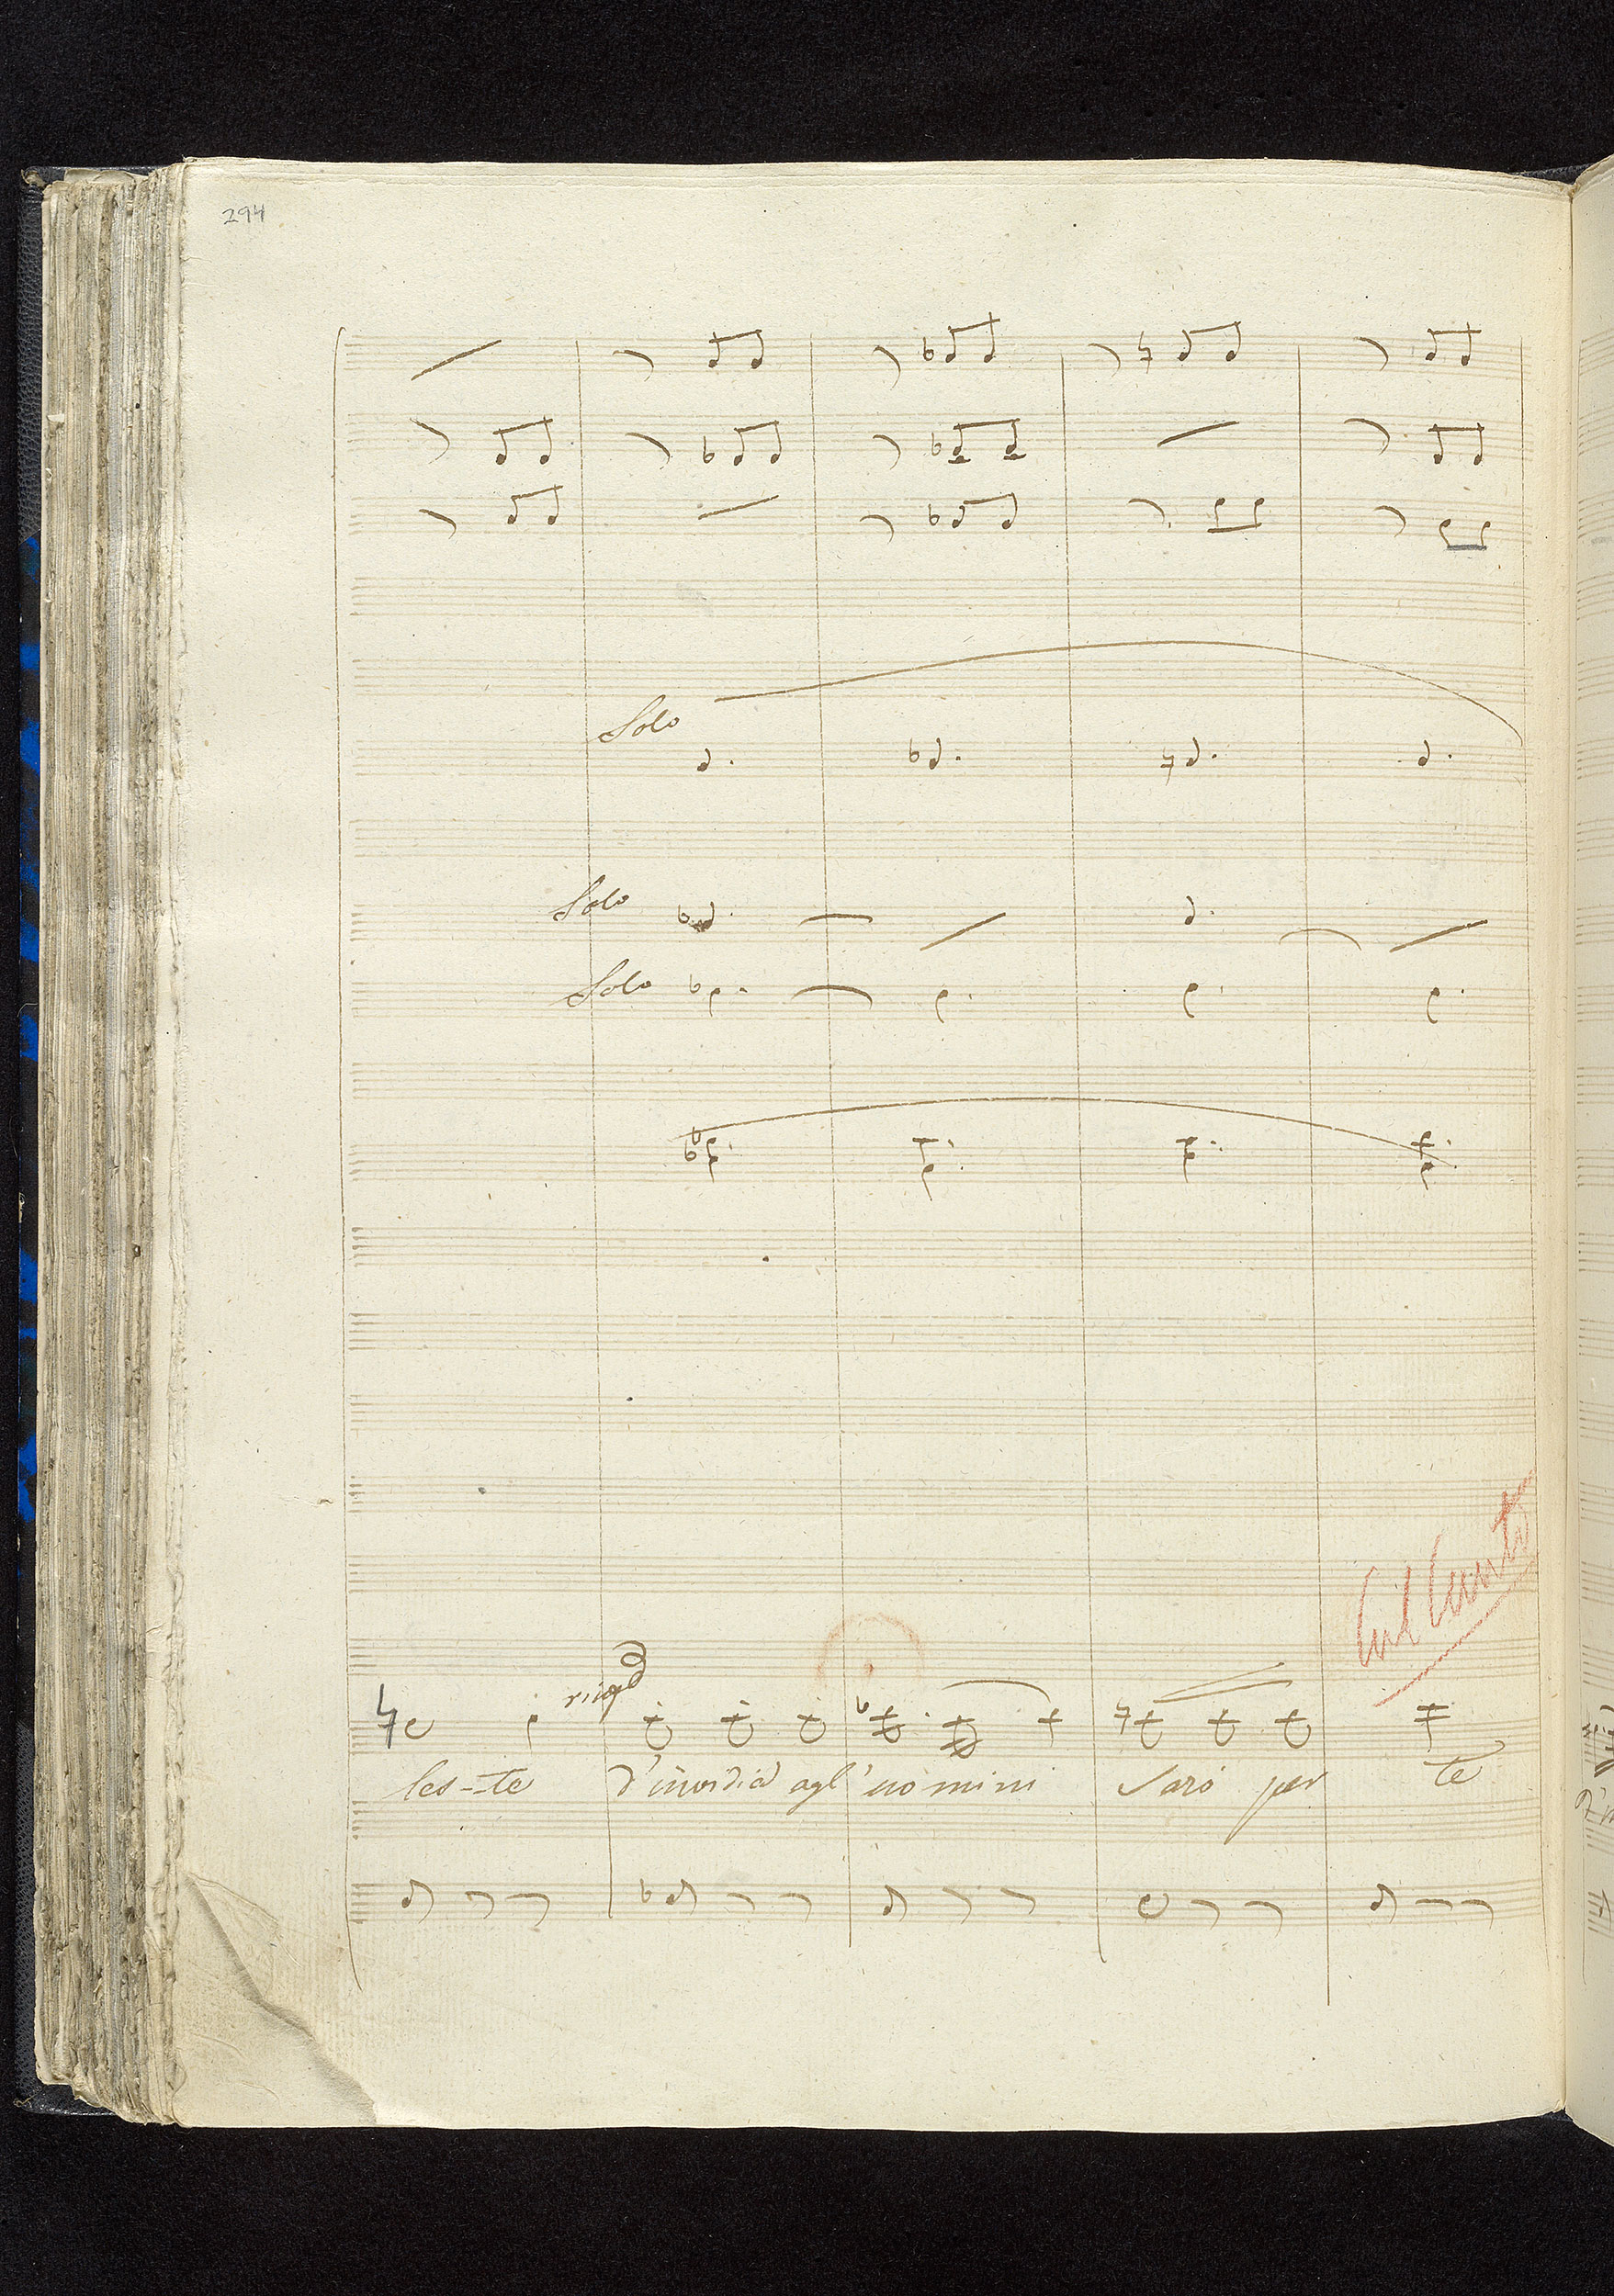 294
Solo
Solo
Solo
Col Canto
les-te d'invidia agl'uomini Sarò per te